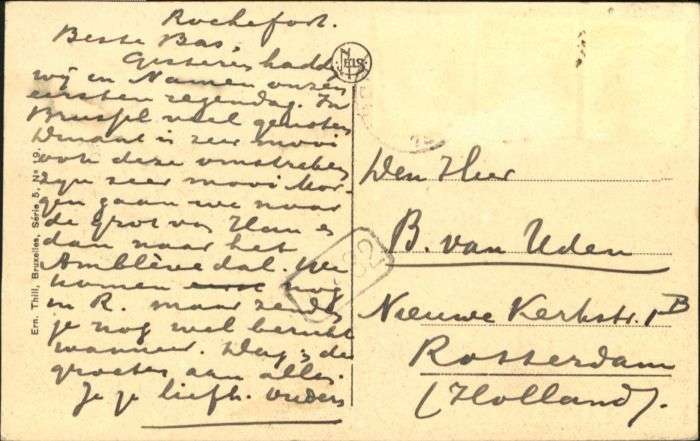 Rochefort.
Beste Bas,
Gisteren hadden
wij in Namen onzen
eersten regendag. In
Brussel veel genoten
Dinant is zeer mooi
ook deze omstreken
zijn zeer mooi Mor-
gen gaan we naar
de grot van Han en
dan naar het
Amblève dal. We
komen nog
in R. maar zenden
je nog wel bericht
wanneer. Dag; de
groeten aan allen.
Je je liefh. Ouders
NELS
Ern. Thill, Bruxelles, Série 5, No 19.
Den Heer
B. van Uden
Nieuwe Kerkstr. 1B
Rotterdam
(Holland).